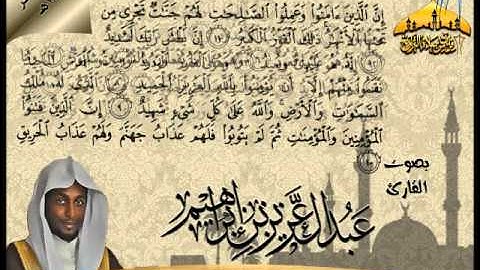 إِنَّ الَّذِينَ ءَامَنُوا وَعَمِلُوا الصَّٰلِحَٰتِ لَهُمْ جَنَّٰتٌ تَجْرِي مِن
تَحْتِهَا الْأَنْهَٰرُ ذَٰلِكَ الْفَوْزُ الْكَبِيرُ ١١ إِنَّ بَطْشَ رَبِّكَ
نَقَمُوا مِنْهُمْ إِلَّا أَن يُؤْمِنُوا بِاللَّهِ الْعَزِيزِ الْحَمِيدِ ٨ الَّذِي لَهُ مُلْكُ
السَّمَٰوَٰتِ وَالْأَرْضِ وَاللَّهُ عَلَىٰ كُلِّ شَيْءٍ شَهِيدٌ ٩ إِنَّ الَّذِينَ فَتَنُوا
الْمُؤْمِنِينَ وَالْمُؤْمِنَٰتِ ثُمَّ لَمْ يَتُوبُوا فَلَهُمْ عَذَابُ جَهَنَّمَ وَلَهُمْ عَذَابُ الْحَرِيقِ
١٠
بصوت
القارئ
عبد العزيز بن إبراهيم